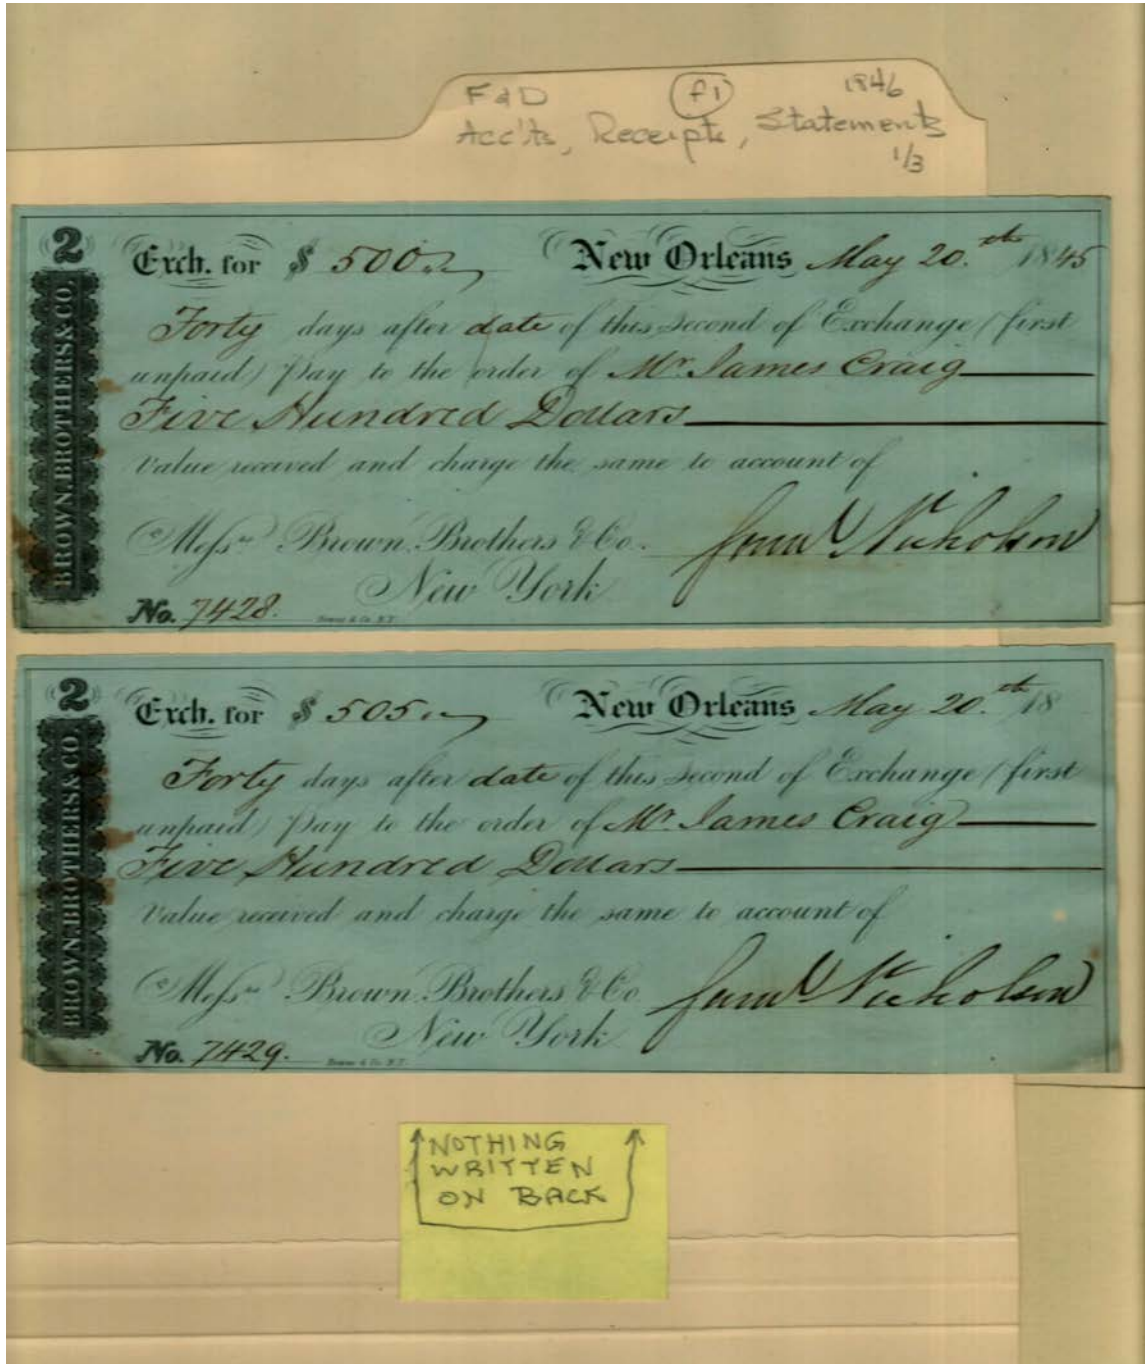 F & D f1 1846
Acc'ts, Receipts, Statements
1/3
2
BROWN, BROTHERS & CO.
Exch. for $ 500 New Orleans May 20.th 1845
Forty days after date of this Second of Exchange (first
unpaid) Pay to the order of Mr. James Craig
Five Hundred Dollars
Value received and charge the same to account of
Messrs Brown, Brothers & Co. Saml Nicholson
New York
No. 7428.
2
BROWN, BROTHERS & CO.
Exch. for $ 505 New Orleans May 20.th 18
Forty days after date of this Second of Exchange (first
unpaid) Pay to the order of Mr. James Craig
Five Hundred Dollars
Value received and charge the same to account of
Messrs Brown, Brothers & Co. Saml Nicholson
New York
No. 7429.
NOTHING
WRITTEN
ON BACK